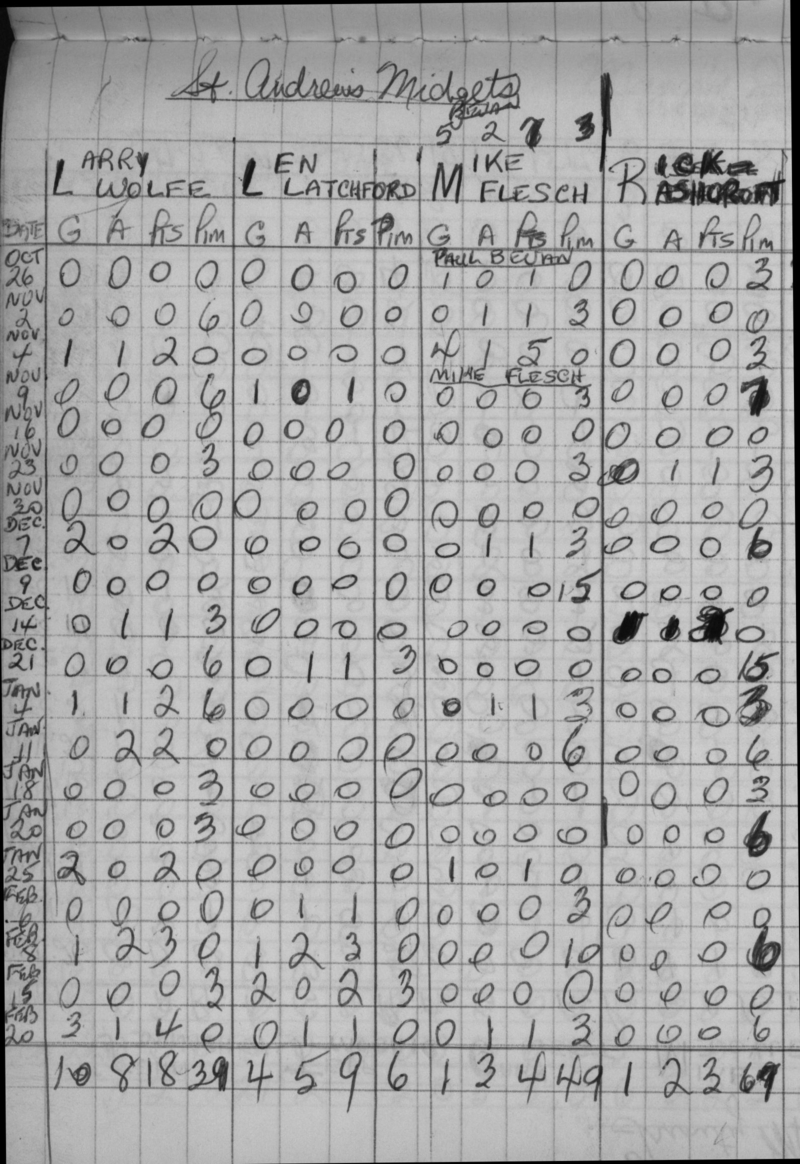 St. Andrews Midgets
BEVAN
5 2 7 3
LARRY WOLFE LEN LATCHFORD MIKE FLESCH RICK ASHCROFT
DATE G A PTS PIM G A PTS PIM G A PTS PIM G A PTS PIM
PAUL BEVAN
OCT 26 0 0 0 0 0 0 0 0 1 0 1 0 0 0 0 3
NOV 2 0 0 0 6 0 0 0 0 0 1 1 3 0 0 0 0
NOV 4 1 1 2 0 0 0 0 0 4 1 5 0 0 0 0 3
MIKE FLESCH
NOV 9 0 0 0 6 1 0 1 0 0 0 0 3 0 0 0 7
NOV 16 0 0 0 0 0 0 0 0 0 0 0 0 0 0 0 0
NOV 23 0 0 0 3 0 0 0 0 0 0 0 3 0 1 1 3
NOV 30 0 0 0 0 0 0 0 0 0 0 0 0 0 0 0 0
DEC. 7 2 0 2 0 0 0 0 0 0 1 1 3 0 0 0 6
DEC 9 0 0 0 0 0 0 0 0 0 0 0 15 0 0 0 0
DEC 14 0 1 1 3 0 0 0 0 0 0 0 0 1 1 0
DEC. 21 0 0 0 6 0 1 1 3 0 0 0 0 0 0 0 15
JAN 4 1 1 2 6 0 0 0 0 0 1 1 3 0 0 0 3
JAN 11 0 2 2 0 0 0 0 0 0 0 0 6 0 0 0 6
JAN 18 0 0 0 3 0 0 0 0 0 0 0 0 0 0 0 3
JAN 20 0 0 0 3 0 0 0 0 0 0 0 0 0 0 0 6
JAN 25 2 0 2 0 0 0 0 0 1 0 1 0 0 0 0 0
FEB. 6 0 0 0 0 0 1 1 0 0 0 0 3 0 0 0 0
FEB 8 1 2 3 0 1 2 3 0 0 0 0 10 0 0 0 6
FEB 15 0 0 0 3 2 0 2 3 0 0 0 0 0 0 0 0
FEB 20 3 1 4 0 0 1 1 0 0 1 1 3 0 0 0 6
10 8 18 39 4 5 9 6 1 3 4 49 1 2 3 67